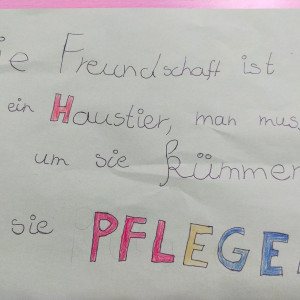 ie Freundschaft ist
ein Haustier, man mus
um sie kümmer
sie PFLEGE